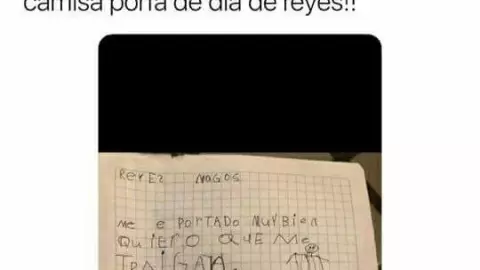 camisa porfa de día de reyes!!
REYES MAGOS
ME E PORTADO MUY BIEN
QUIERO QUE ME
TRAIGAN